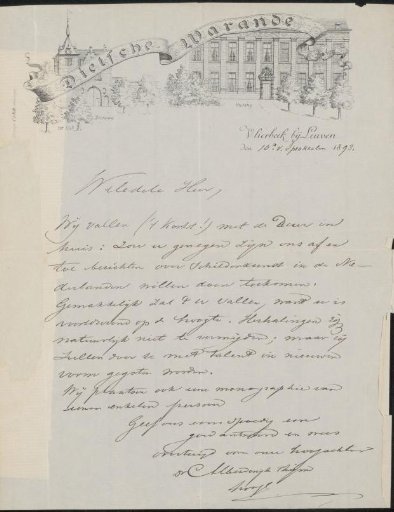 Dietsche Warande
Vlierbeek bij Leuven
den 10n. v. Speltmaand 1893.
Weledele Heer,
Wij vallen ('t Hoofd!) met de Deur in
huis: Zou u genegen zijn ons af en
toe berichten over Schilderkunst in de Ne-
derlanden willen doen toekomen.
Gemakkelijk zal 't u vallen, want u is
voortdurend op de hoogte. Herhalingen zijn
natuurlijk niet te vermijden; maar zij
zullen door u met talent in nieuwen
vorm gegoten worden.
Wij plaatsen ook eene monographie van
eenen enkelen persoon
Geef ons eens spoedig een
goed antwoord en wees
overtuigd van onze hoogachting
Dr Alberdingk Thijm